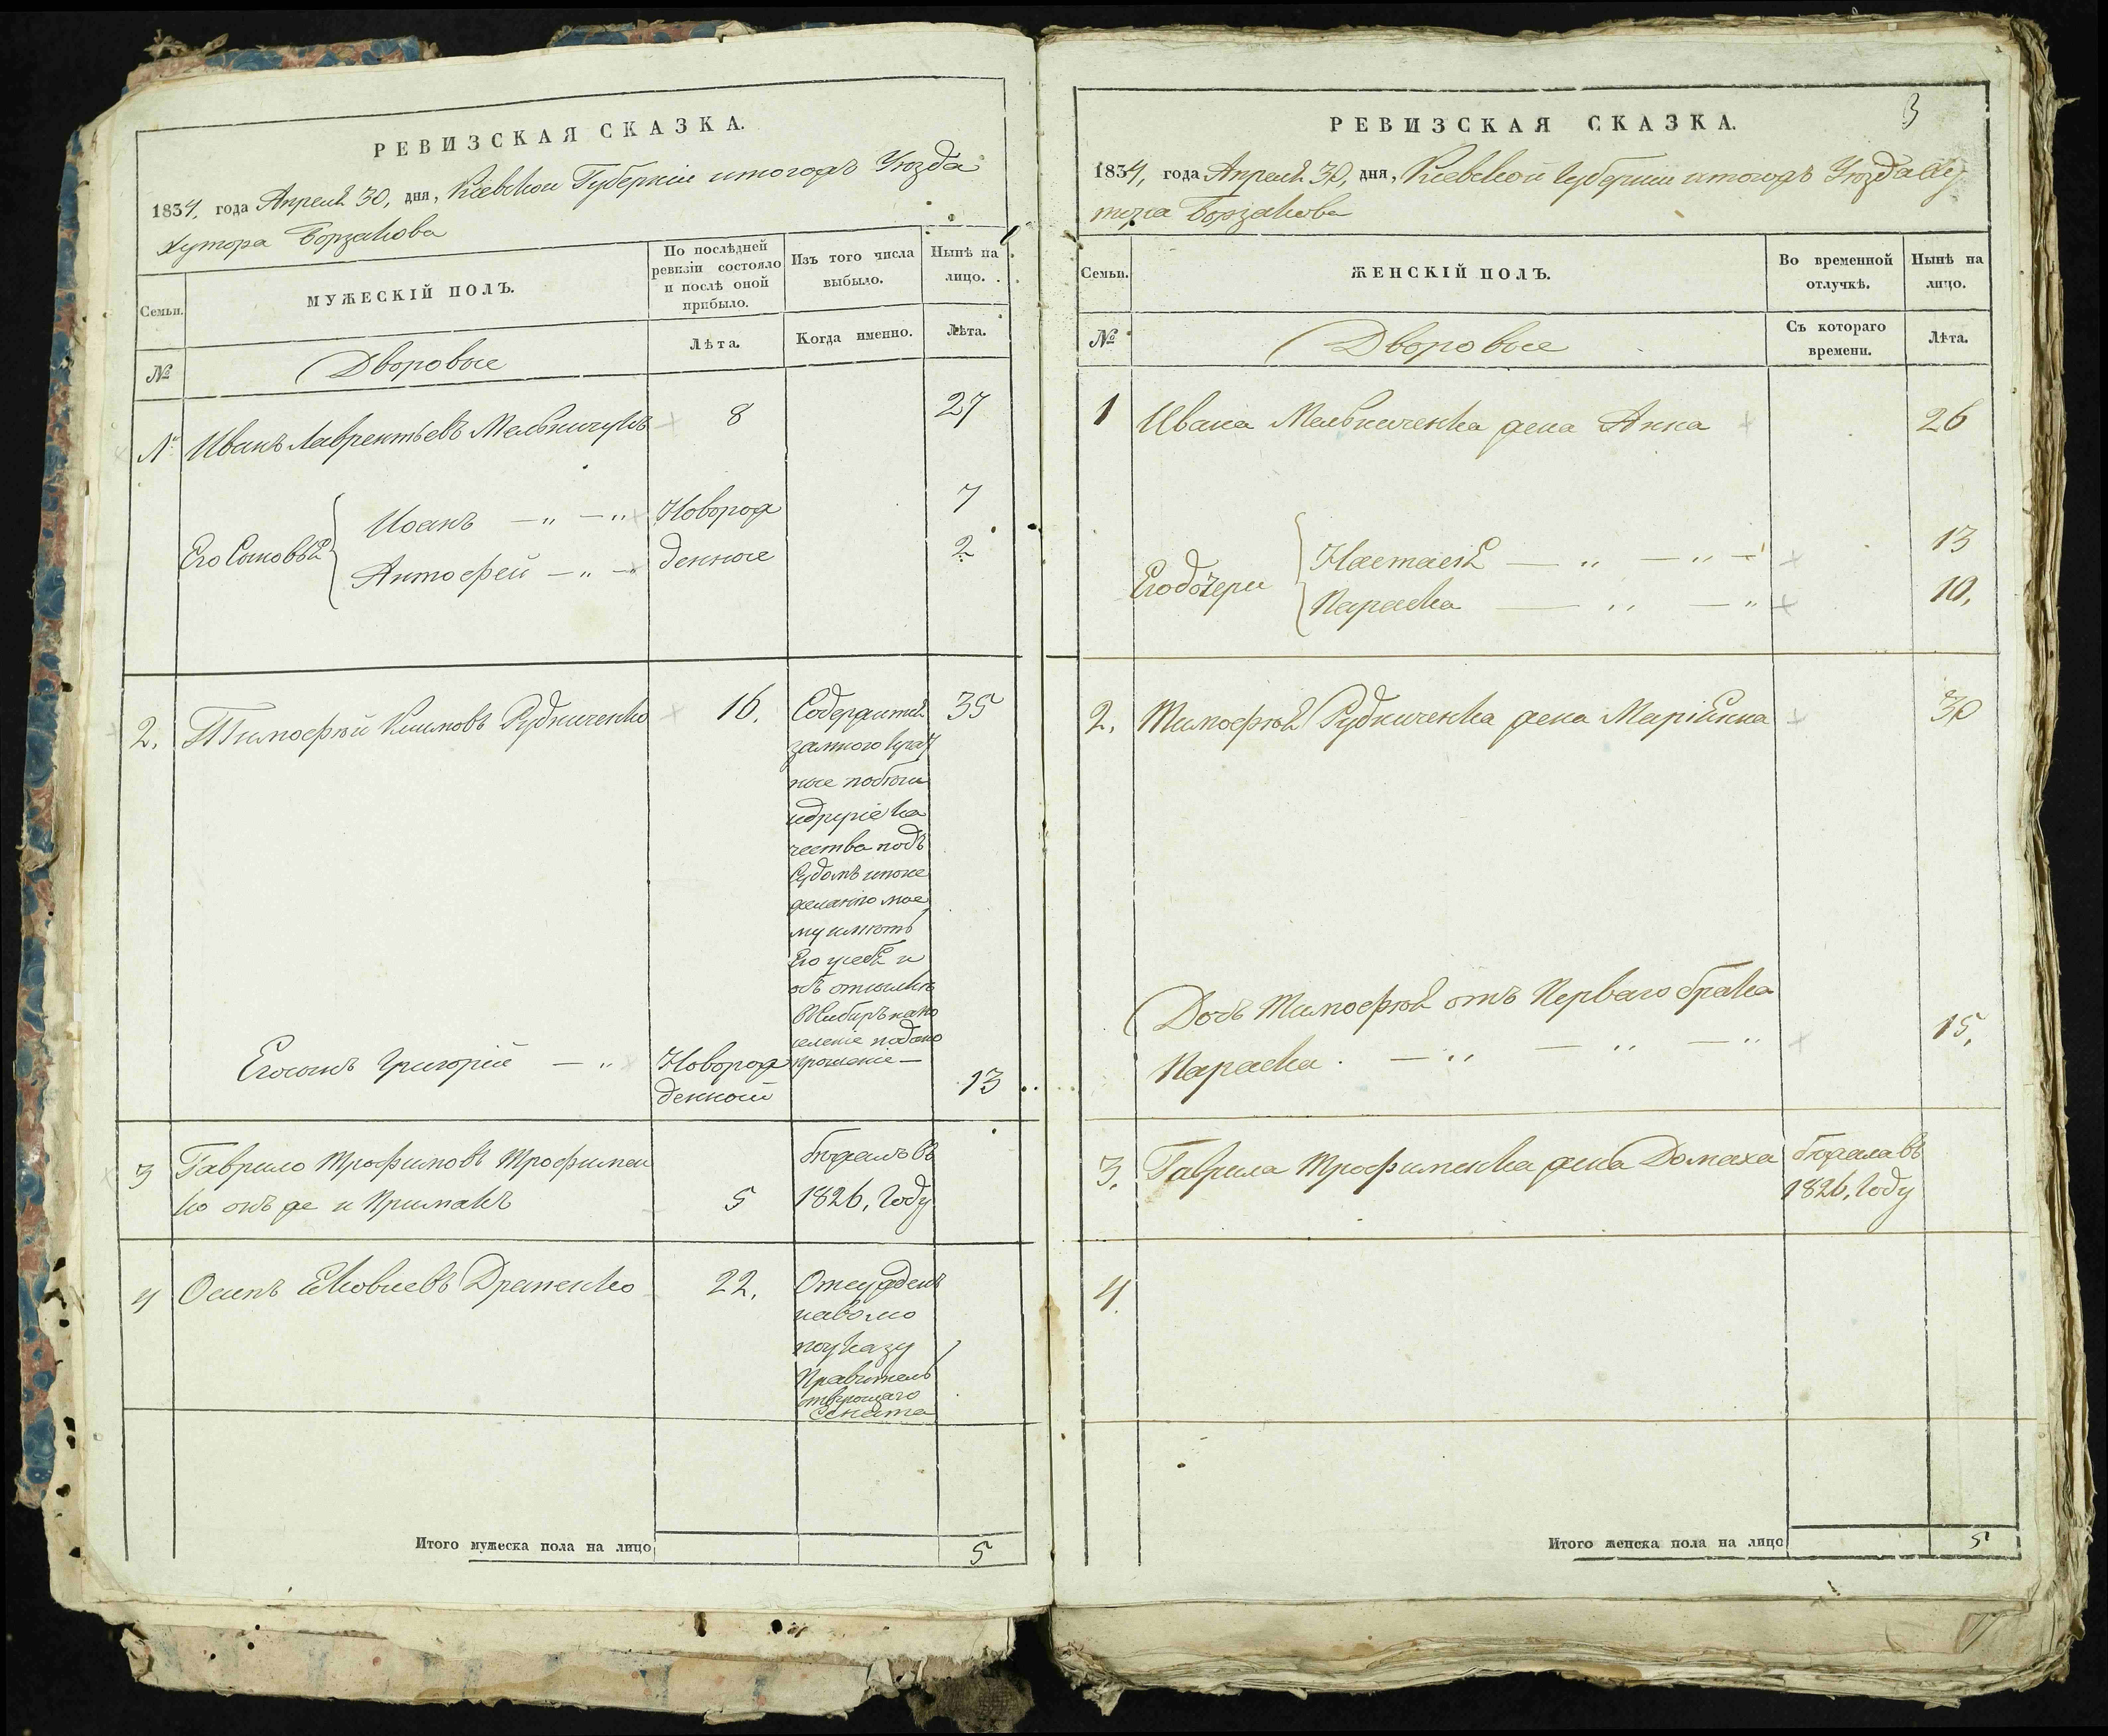 РЕВИЗСКАЯ СКАЗКА.
1834, года Апреля 30, дня, Киевской Губернии итогожъ Уѣзда
хутора Борзакова
Семьи.
МУЖЕСКІЙ ПОЛЪ.
По послѣдней ревизіи состояло и послѣ оной прибыло.
Изъ того числа выбыло.
Нынѣ на лицо.
№
Дворовые
Лѣта.
Когда именно.
Лѣта.
Иванъ Лаврентьевъ Мельничукъ 8 27
Его Сыновья
Иоанъ — „ — „ Новорож 7
Антофей — „ — „ денные 2
2. Тимофѣй Климовъ Рудниченко 16. Содержится 35
за многократ
ные побѣги
идругіе ка
чества подъ
Судомъ ипоне
желанію мое
му имѣть
Его усебя и
объ отсылкѣ
ВСибирь напо
селеніе подано
прошеніе —
Егосынъ Григорій — „ Новорож
денной 13
3 Гаврило Трофимовъ Трофимен
ко онъ же и Примакъ 5
бѣжалъ въ
1826, Году
4 Осипъ Яковлевъ Драненко 22. Отсужденъ
наволю
поуказу
Правитель
ствующаго
Сената
Итого мужеска пола на лицо 5
3
РЕВИЗСКАЯ СКАЗКА.
1834, года Апреля 30, дня, Киевской Губернии итогожъ Уѣзда Ху
тора Борзакова
Семьи.
ЖЕНСКІЙ ПОЛЪ.
Во временной отлучкѣ.
Нынѣ на лицо.
№
Дворовые
Съ котораго времени.
Лѣта.
1 Ивана Мельниченка жена Анна 26
Егодочери
Настасія — „ — „ — 13
Параска — „ — „ 10.
2. Тимофѣя Рудниченка жена Маріянна 30
Дочь Тимофѣя отъ Перваго брака
Параска. — „ — „ — „ 15.
3. Гаврила Трофименка жена Домаха бѣжала въ
1826, Году
4.
Итого женска пола на лицо 5